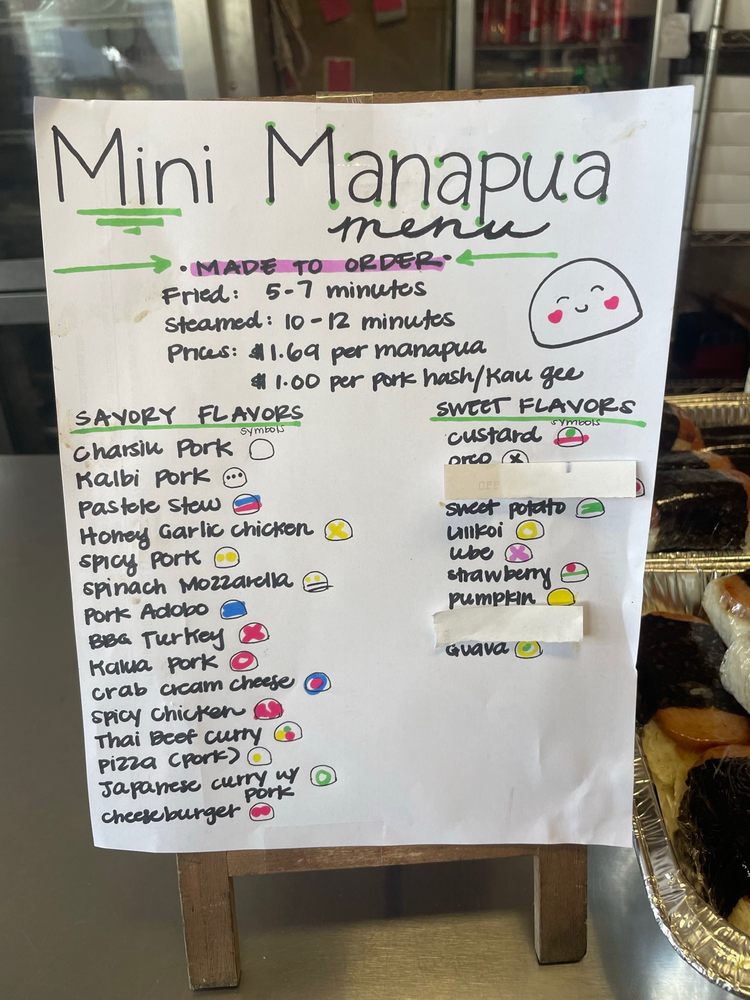 Mini Manapua
menu
• MADE TO ORDER •
Fried: 5-7 minutes
Steamed: 10-12 minutes
Prices: $1.69 per manapua
$1.00 per pork hash/kau gee
SAVORY FLAVORS
symbols
Charsiu Pork
Kalbi Pork
Pastele Stew
Honey Garlic Chicken
Spicy Pork
Spinach Mozzarella
Pork Adobo
BBQ Turkey
Kalua Pork
Crab cream cheese
Spicy Chicken
Thai Beef Curry
Pizza (pork)
Japanese curry w/
pork
Cheeseburger
SWEET FLAVORS
symbols
custard
oreo
sweet potato
lilikoi
ube
strawberry
pumpkin
Guava